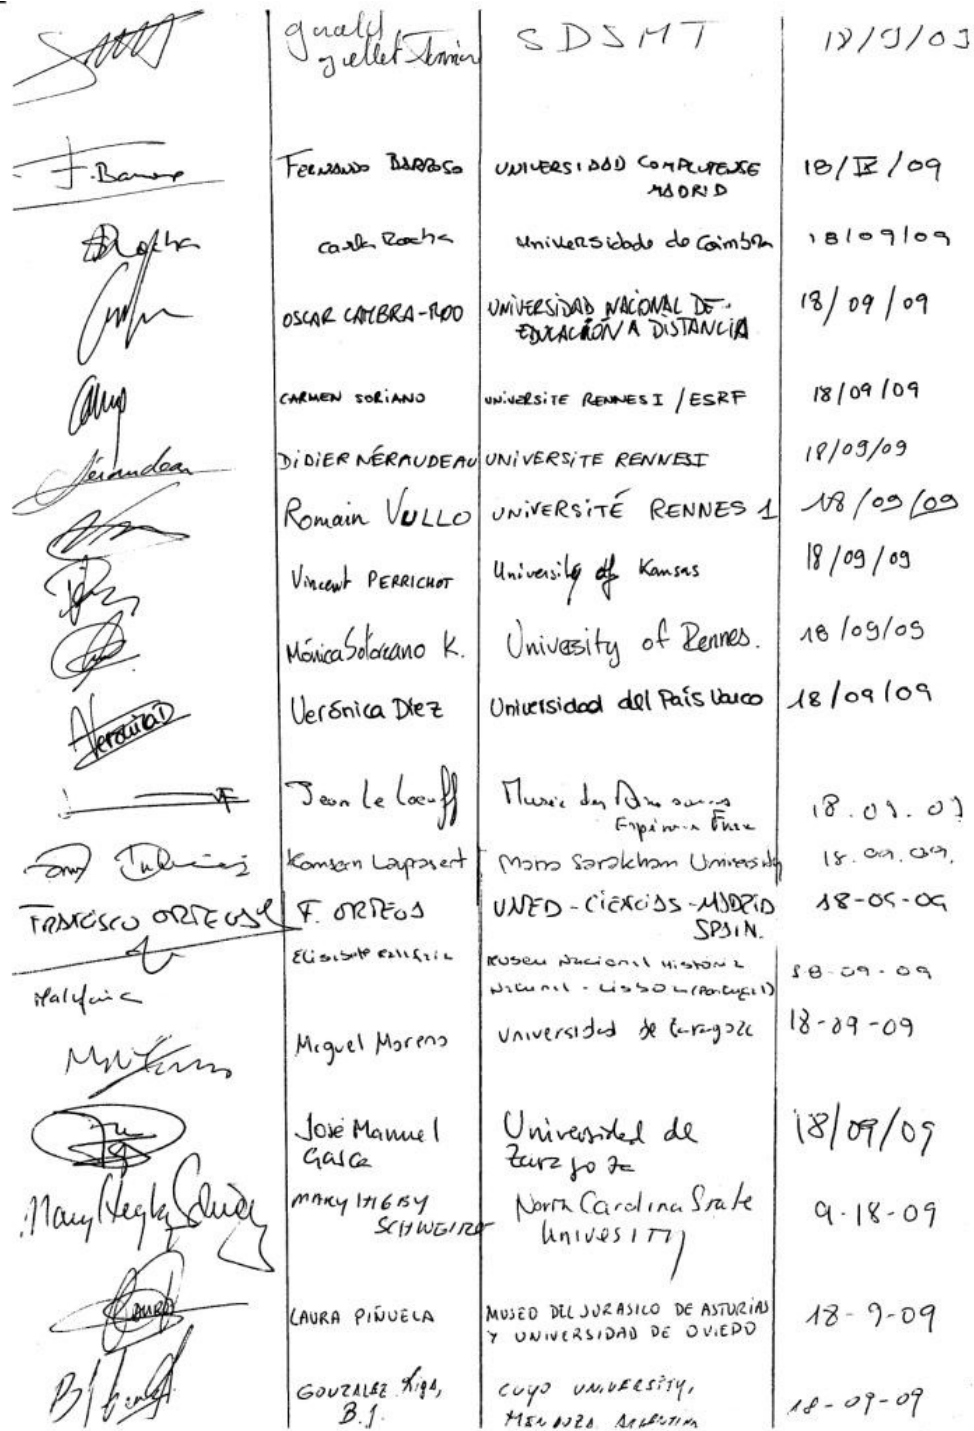 gerald grellet-Tinner SDSMT 18/9/09
F. Barroso FERNANDO BARROSO UNIVERSIDAD COMPLUTENSE 18/IX/09
MADRID
Rocha Carla Rocha Universidade de Coimbra 18/09/09
OSCAR CAMBRA-MOO UNIVERSIDAD NACIONAL DE 18/09/09
EDUCACIÓN A DISTANCIA
CARMEN SORIANO UNIVERSITE RENNES I / ESRF 18/09/09
Néraudeau DIDIER NÉRAUDEAU UNIVERSITE RENNES I 18/09/09
Romain VULLO UNIVERSITÉ RENNES 1 18/09/09
Vincent PERRICHOT University of Kansas 18/09/09
Mónica Solórzano K. University of Rennes. 18/09/09
VerónicaD Verónica Díez Universidad del País Vasco 18/09/09
Jean Le Loeuff Musée des Dinosaures 18.09.09
Espéraza
Komsorn Lauprasert Maha Sarakham University 18.09.09.
FRANCISCO ORTEGA F. ORTEGA UNED-CIENCIAS-MADRID 18-09-09
SPAIN.
Malafaia Elisabete Malafaia Museu Nacional História 18-09-09
Natural - Lisbon (Portugal)
Miguel Moreno Universidad de Zaragoza 18-09-09
José Manuel Universidad de 18/09/09
Gasca Zaragoza
Mary Higby Schweitzer MARY HIGBY North Carolina State 9-18-09
SCHWEITZER University
Laura LAURA PIÑUELA MUSEO DEL JURASICO DE ASTURIAS 18-9-09
Y UNIVERSIDAD DE OVIEDO
GONZALEZ Riga, CUYO UNIVERSITY, 18-09-09
B.J. MENDOZA. ARGENTINA